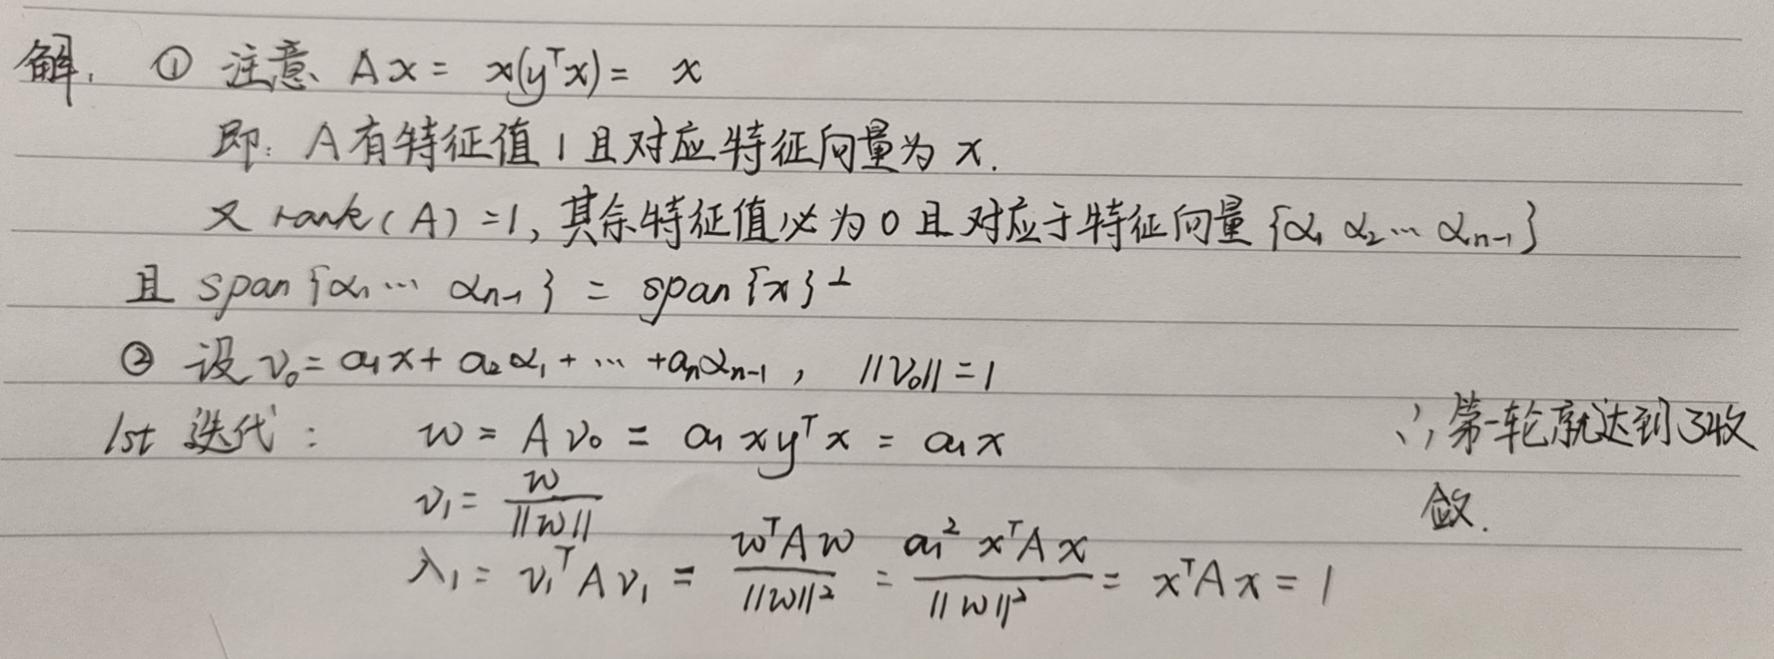 解. ① 注意、Ax = x(yᵀx) = x
即: A有特征值1且对应特征向量为x.
又 rank(A)=1, 其余特征值必为0且对应于特征向量{α₁ α₂… αₙ₋₁}
且 span{α₁… αₙ₋₁} = span{x}⊥
② 设 v₀ = a₁x + a₂α₁ + … + aₙαₙ₋₁, ||v₀|| = 1
1st 迭代: w = Av₀ = a₁xyᵀx = a₁x
∴第一轮就达到了收
敛.
v₁ = w/||w||
λ₁ = v₁ᵀAv₁ = wᵀAw/||w||² = a₁²xᵀAx/||w||² = xᵀAx = 1